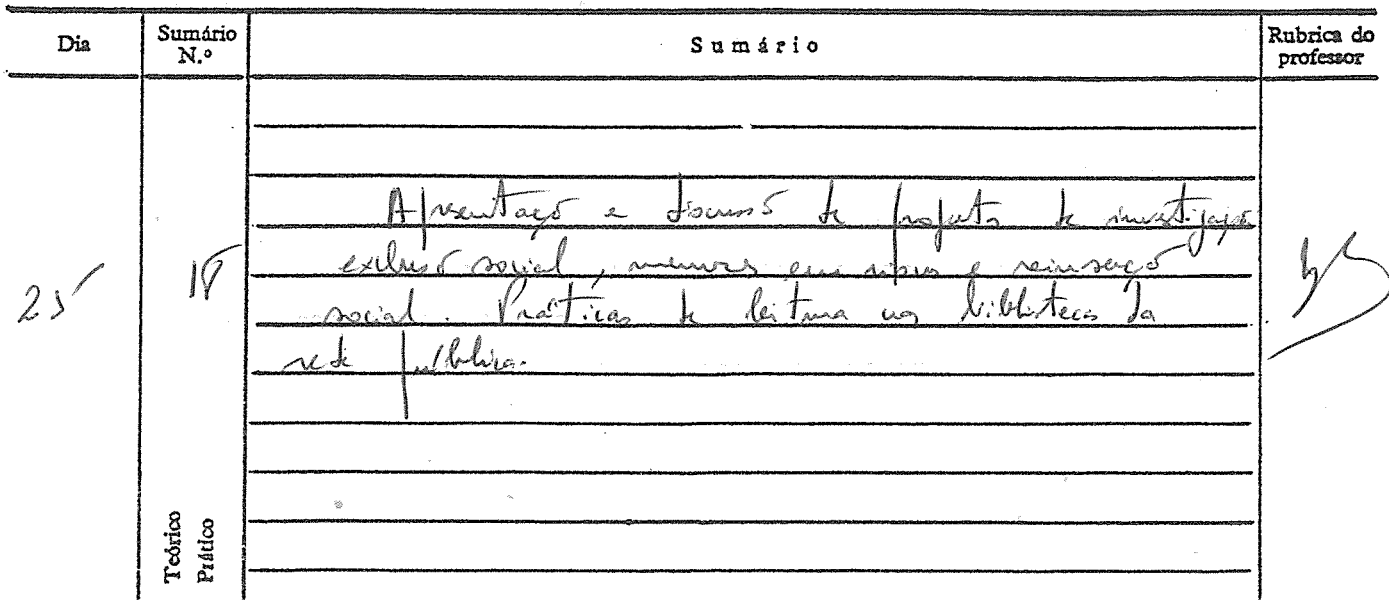 Dia
Sumário N.º
Sumário
Rubrica do professor
25
Apresentação e discussão de projectos de investigação
exclusão social, menores em risco e reinserção
social. Práticas de leitura nas bibliotecas da
rede pública.
Teórico
Prático